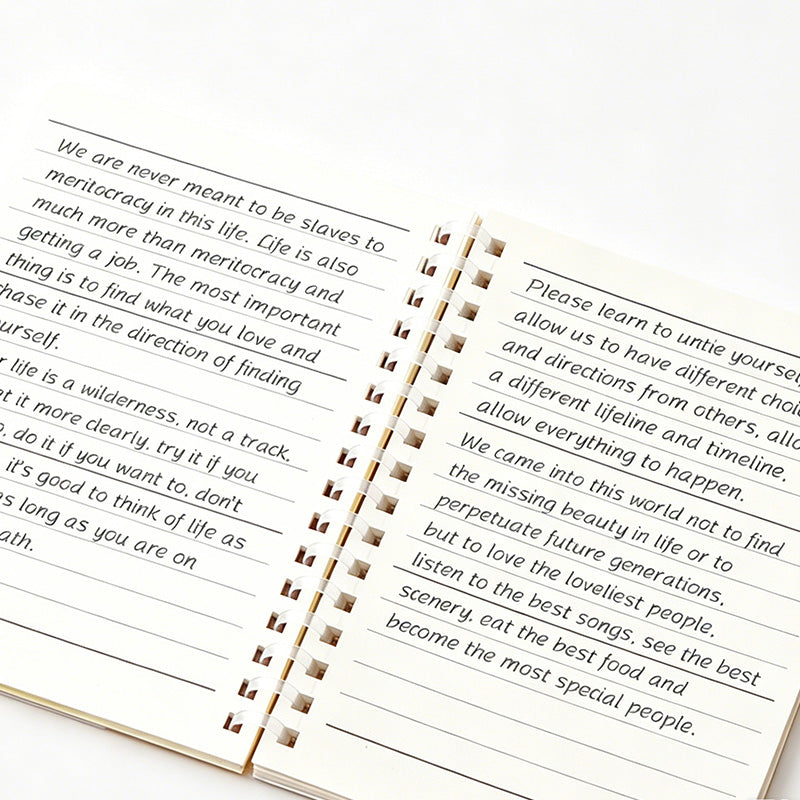 We are never meant to be slaves to
meritocracy in this life. Life is also
much more than meritocracy and
getting a job. The most important
thing is to find what you love and
it in the direction of finding
life is a wilderness, not a track.
it more clearly, try it if you
do it if you want to, don't
it's good to think of life as
long as you are on
Please learn to untie
allow us to have different
and directions from others,
a different lifeline and timeline,
allow everything to happen.
We came into this world not to find
the missing beauty in life or to
perpetuate future generations,
but to love the loveliest people,
listen to the best songs, see the best
scenery, eat the best food and
become the most special people.